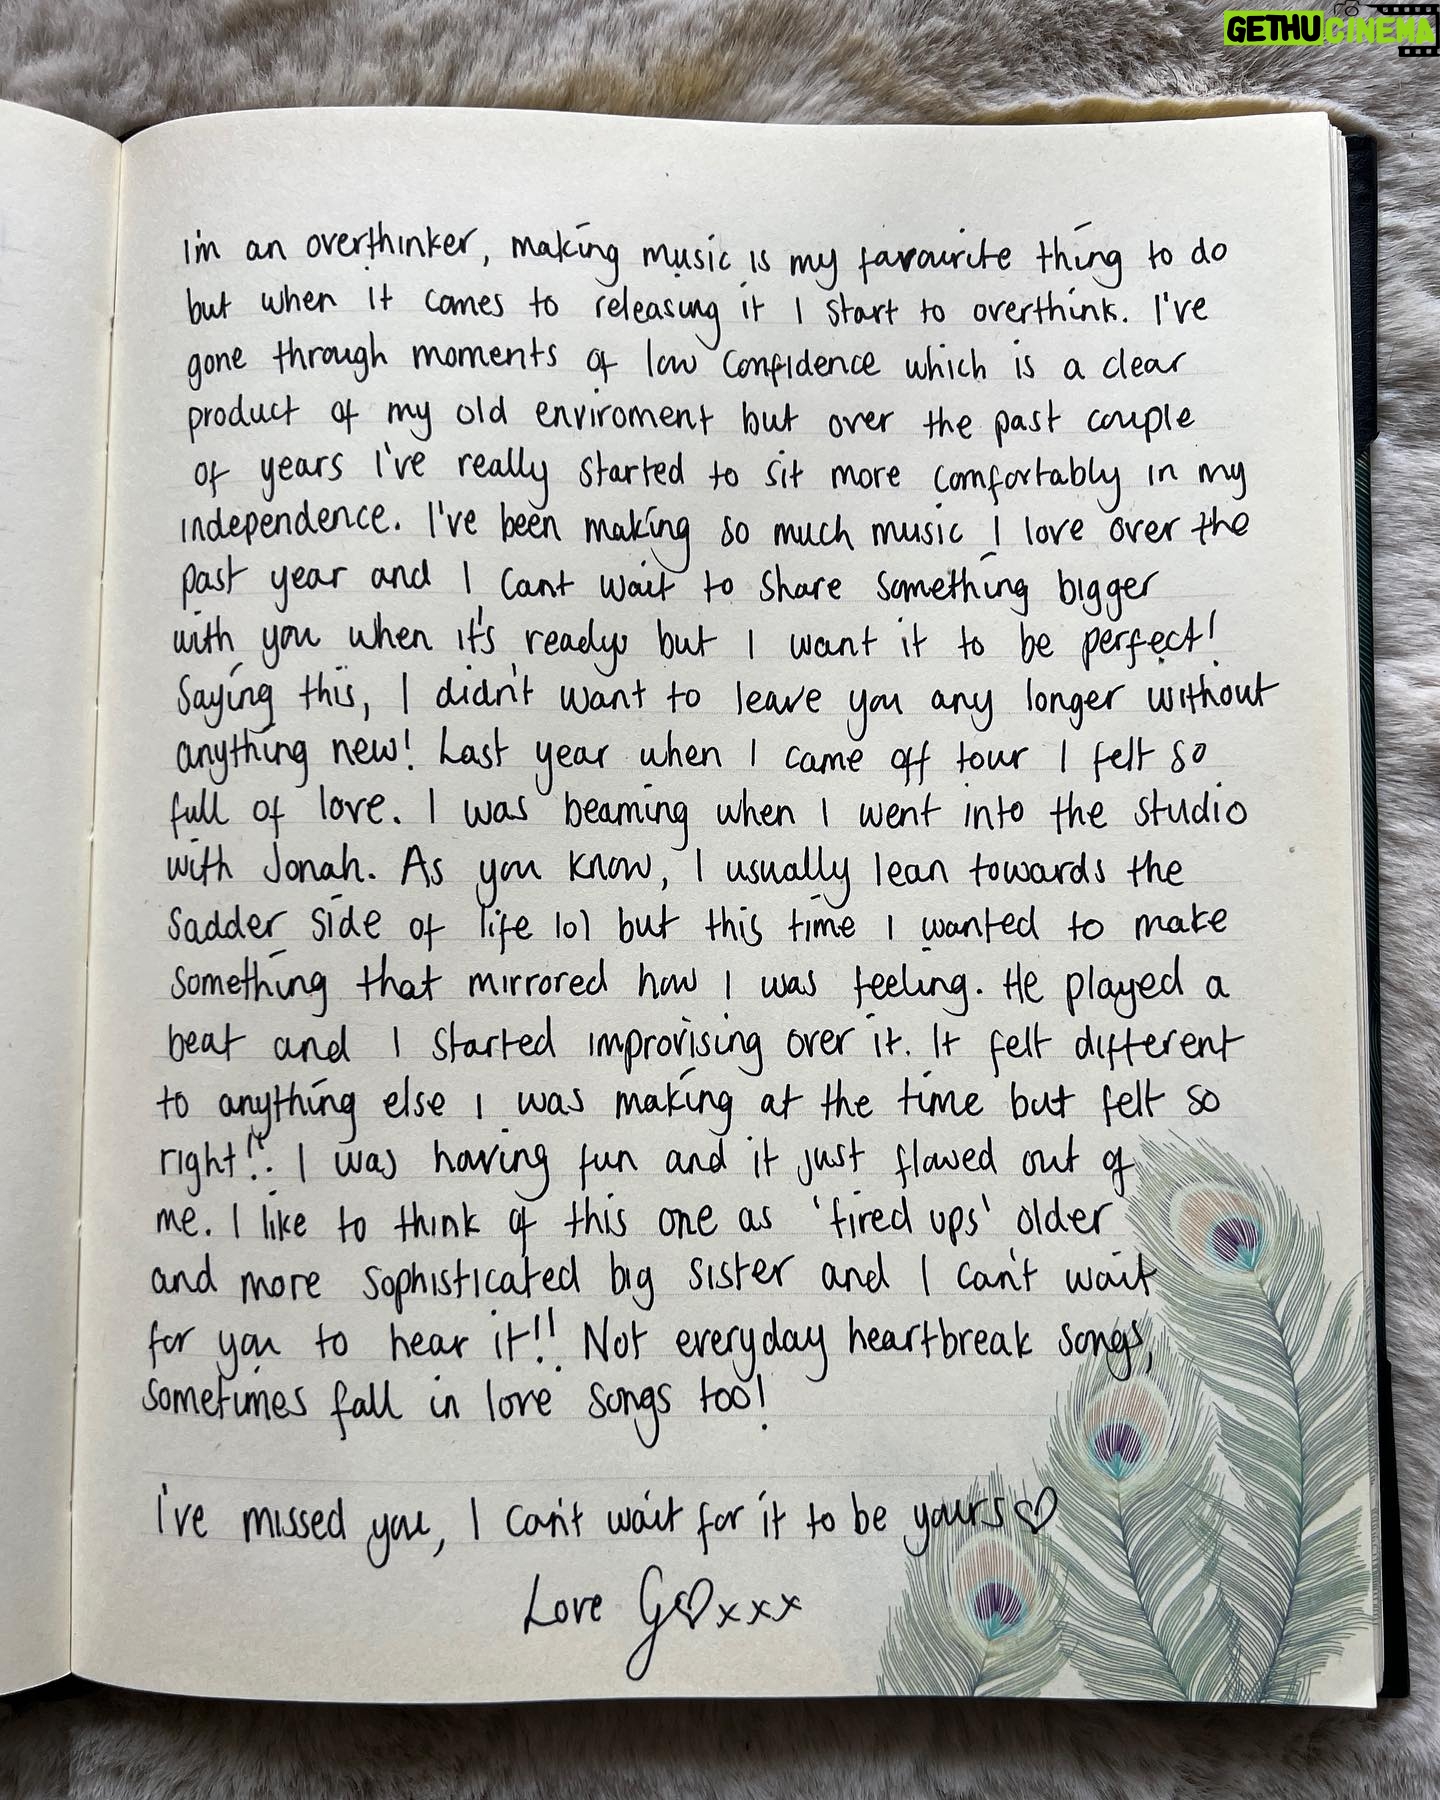 GETHUCINEMA
I'm an overthinker, making music is my favourite thing to do
but when it comes to releasing it I start to overthink. I've
gone through moments of low confidence which is a clear
product of my old enviroment but over the past couple
of years I've really started to sit more comfortably in my
independence. I've been making so much music I love over the
past year and I cant wait to share something bigger
with you when it's ready but I want it to be perfect!
Saying this, I didn't want to leave you any longer without
anything new! Last year when I came off tour I felt so
full of love. I was beaming when I went into the studio
with Jonah. As you know, I usually lean towards the
sadder side of life lol but this time I wanted to make
something that mirrored how I was feeling. He played a
beat and I started improvising over it. It felt different
to anything else I was making at the time but felt so
right!! I was having fun and it just flowed out of
me. I like to think of this one as 'fired ups' older
and more sophisticated big sister and I can't wait
for you to hear it!! Not everyday heartbreak songs,
sometimes fall in love songs too!
I've missed you, I can't wait for it to be yours♡
Love G♡xxx